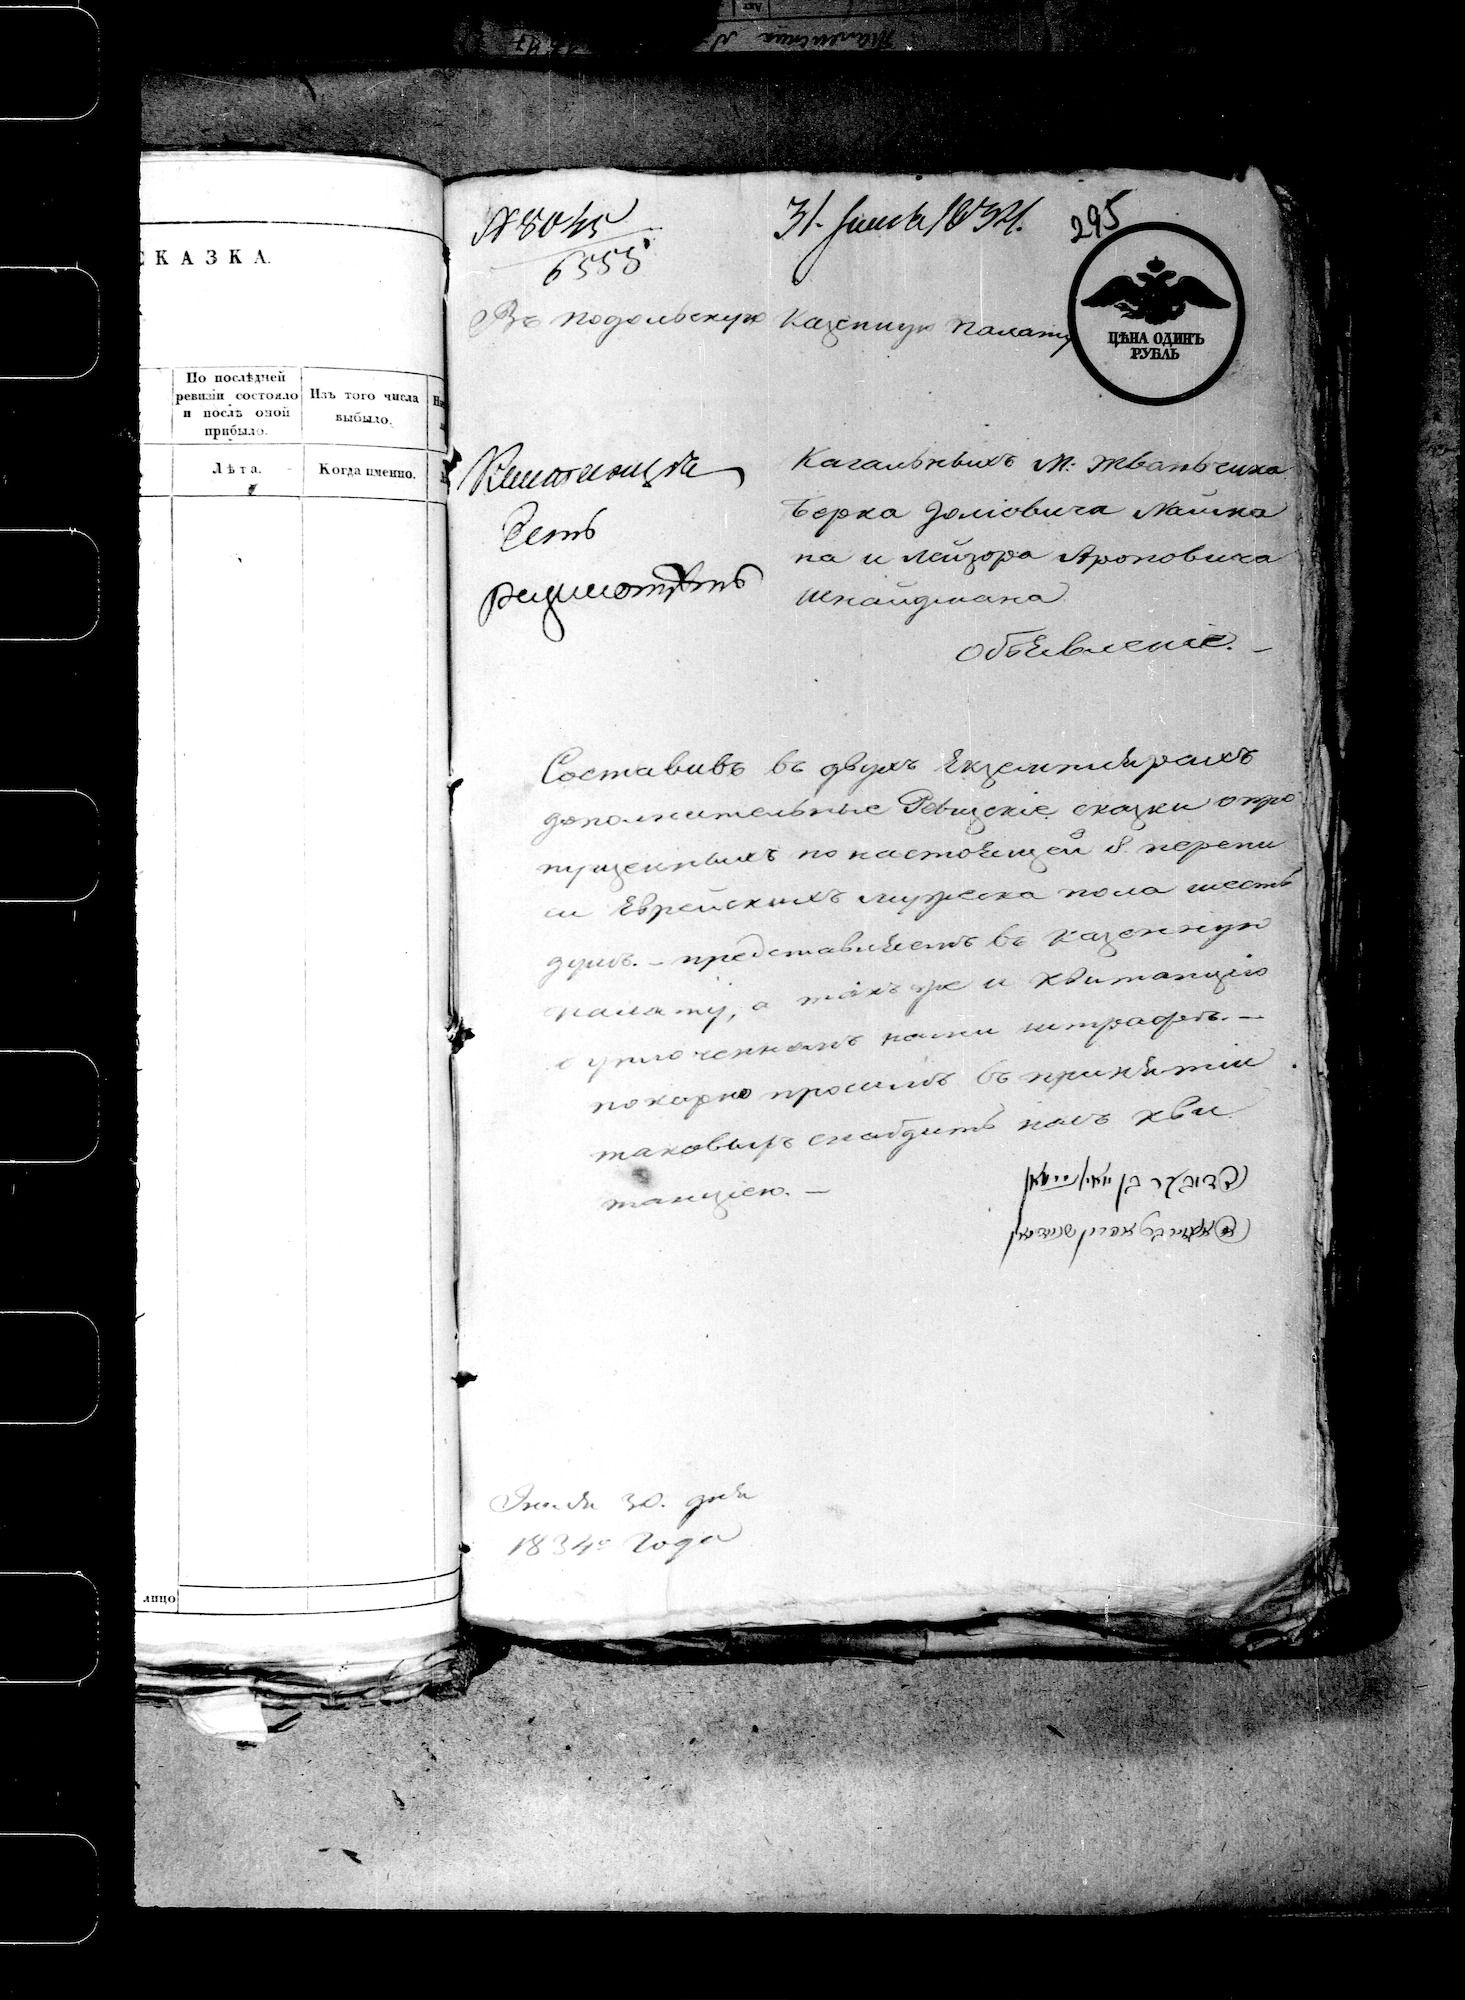 КАЗКА.
По послѣдней
ревизіи состояло
и послѣ оной
прибыло.
Изъ того числа
выбыло.
Лѣта.
Когда именно.
лицо
№ 8045
6555
31. Іюля 1834.
295
ЦѢНА ОДИНЪ
РУБЛЬ
Въ Подольскую Казенную Палату
Квитанцію
есть
Кагальныхъ М: Жванчика
Берка Іоліовича Найма
на и Лейзора Ароновича
Шнайдмана
Объевленіе. –
Составивъ въ двухъ Екземплярахъ
дополнительные Ревизскіе сказки о про
пущенныхъ по настоещей 8. перепи
си Еврейскихъ мужеска пола шесть
душъ. – представляемъ въ Казенную
Палату, а такъ же и квитанцію
о уплоченномъ нами штрафѣ. –
покорно просимъ въ принятіи
таковыхъ снабдить насъ кви
танціею. –
Іюля 30. дня
1834го Года